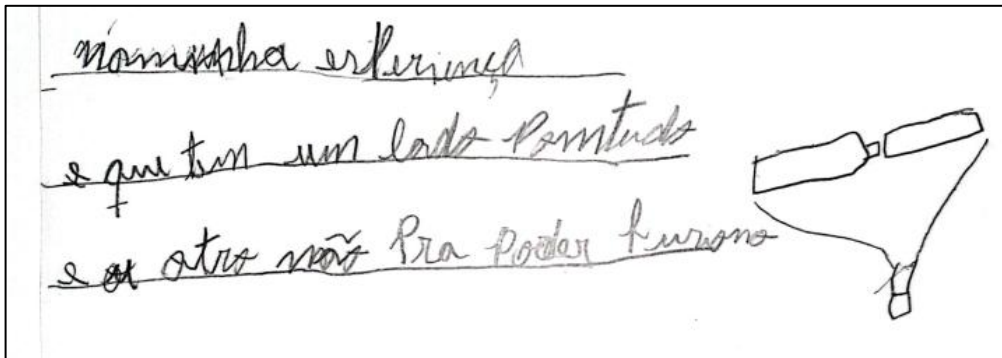 naminha esperiença
e que tem um lado Pomtudo
e o otro não Pra Poder